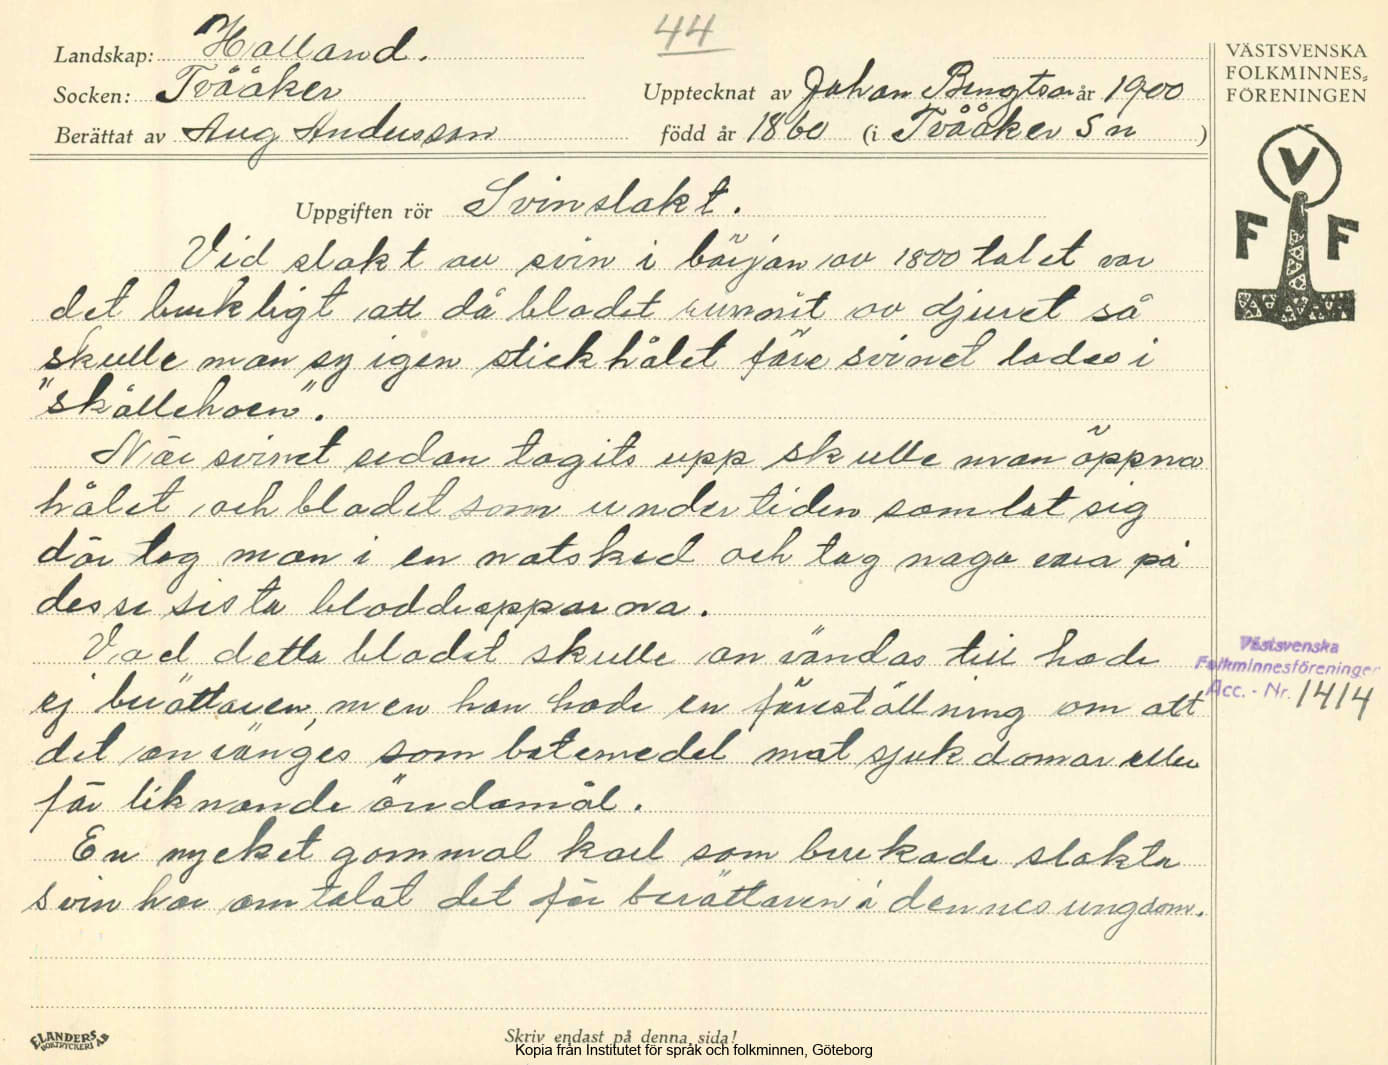 44
Landskap: Halland.
Socken: Tvååker
Upptecknat av Johan Bengtson år 1900
Berättat av Aug Andersson
född år 1860 (i Tvååker Sn )
VÄSTSVENSKA
FOLKMINNES-
FÖRENINGEN
V
F F
Uppgiften rör Svinslakt.
Vid slakt av svin i början av 1800 talet var
det brukligt att då blodet runnit av djuret så
skulle man sy igen stickhålet före svinet lades i
"skållehoen".
När svinet sedan tagits upp skulle man öppna
hålet och blodet som under tiden samlat sig
där tog man i en matsked och tog noga vara på
desse sista bloddropparna.
Vad detta blodet skulle an vändas till hade
ej berättaren, men han hade en föreställning om att
det an vänges som botemedel mot sjukdomar eller
för liknande ändamål.
En mycket gammal karl som brukade slakta
svin har om talat det för berättaren i dennes ungdom.
Västsvenska
Folkminnesföreningen
Acc. - Nr. 1414
ELANDERS
BOKTRYCKERI AB
Skriv endast på denna sida!
Kopia från Institutet för språk och folkminnen, Göteborg